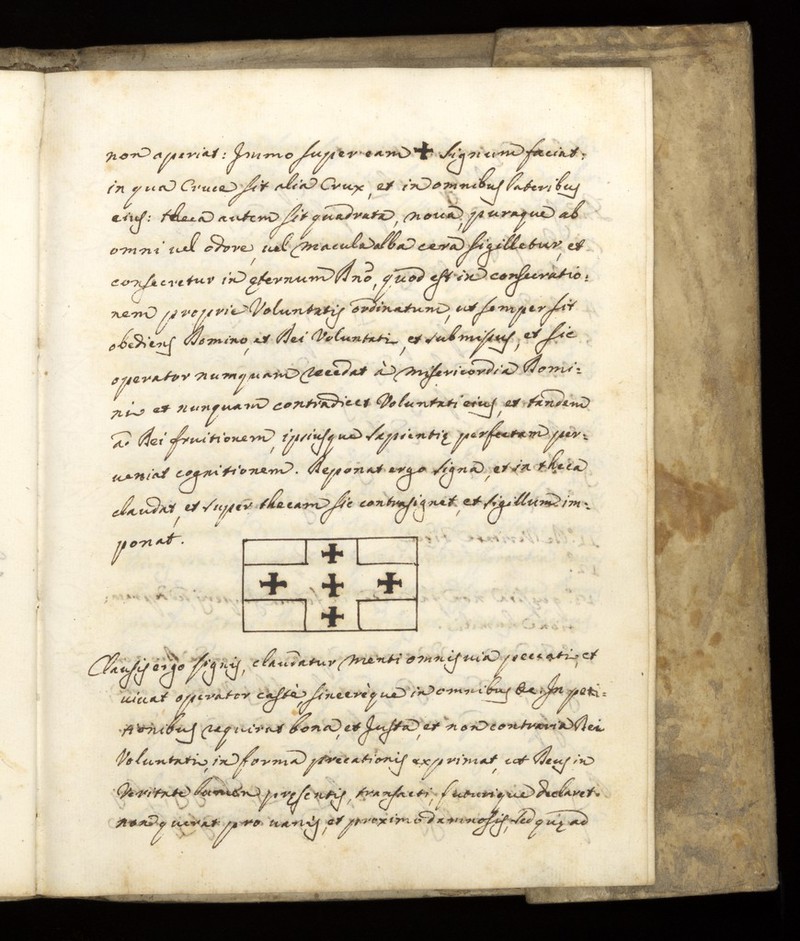 non aperiat: Immo super eam ✚ signum faciat:
in qua Cruce sit alia Crux, et in omnibus lateribus
eius: theca autem sit quadrata, nova, puraque ab
omni vel odore, vel macula alba cera sigilletur, et
consecretur in ęternum Dño, quod est in consecratio:
nem proprie Voluntatis ordinatum, ut semper sit
obediens Domino, et Dei Voluntati, et submissus, et sic
operator numquam recedat à misericordia Domi:
ni et nunquam contradicet Voluntati eius, et tandem
a Dei fruitionem, ipsiusque sapientię perfectam per:
veniat cognitionem. Reponat ergo signa, et in theca
claudat, et super thecam sic contrasignet, et sigillum im:
ponat.
Clausis ergo signis, claudatur menti omnis via peccati, et
vivat operator castè, sincerèque in omnibus &c. In peti:
tionibus requirat bona, et Justa, et non contraria Dei
Voluntati, in forma precationis exprimat, ut Deus in
Veritate lumen pręsentis, transacti, futurique declaret
non quęrat pro vanis, et proximo damnosis, sed quę ad